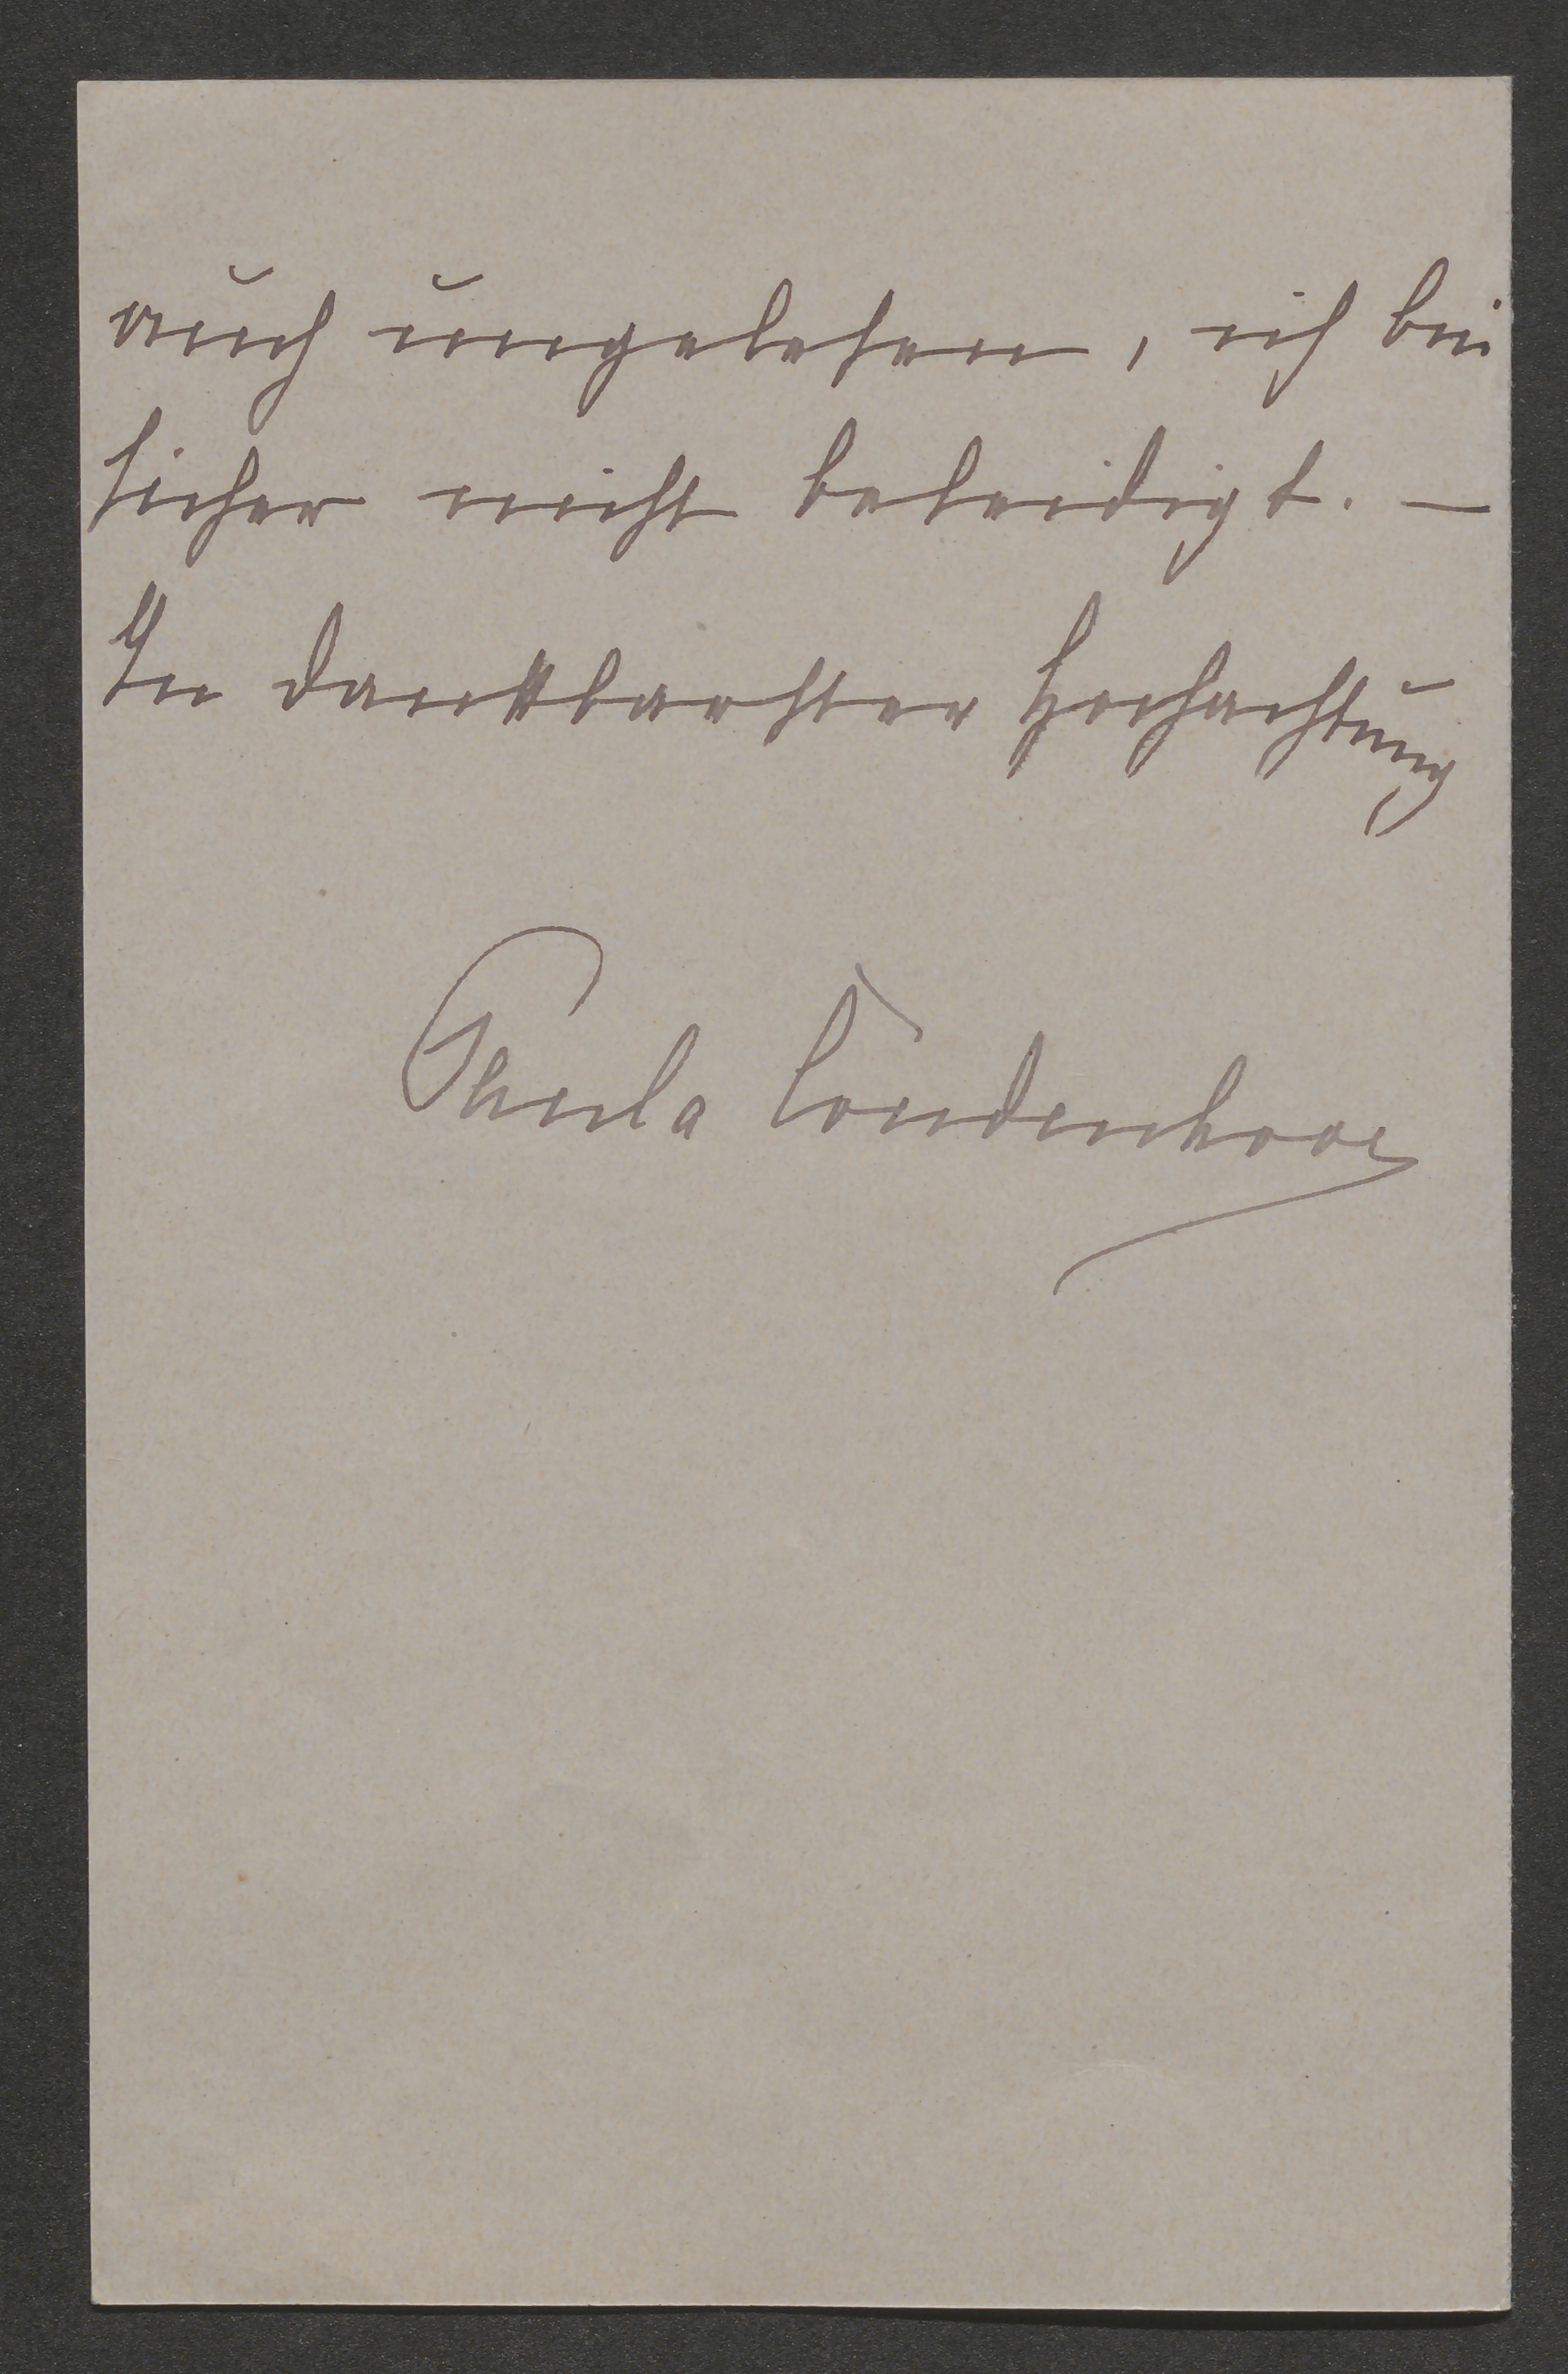 auch ungelesen, ich bin
sicher nicht beleidigt. —
In dankbarster Hochachtung
Paula Coudenhove